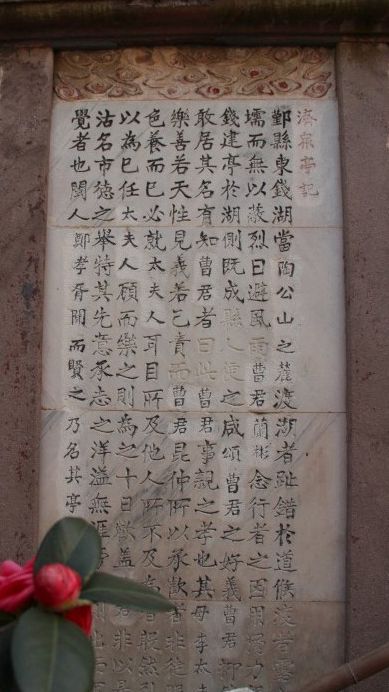 濟眾亭記
鄞縣東錢湖當陶公山之麓渡湖者趾錯於道候渡者雲
壖而無以蔽烈日避風雨曹君蘭彬念行者之困用
錢建亭於湖側既成縣人便之咸頌曹君之好義曹君
敢居其名有知曹君者曰此曹君事親之孝也其母李太
樂善若天性見義若己責而曹君昆仲所以承歡者非徒
色養而已必就太夫人耳目所及他人所不及為者
以為己任太夫人顧而樂之則為之十日歡蓋君非以
沽名市德之舉特其先意承志之洋溢無涯
覺者也閩人鄭孝胥聞而賢之乃名其亭